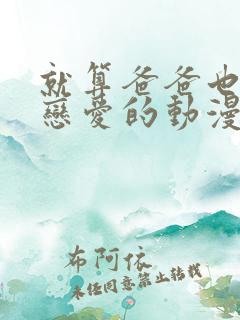 就算爸爸也
戀愛的動漫
布阿依
未任同意禁止转载